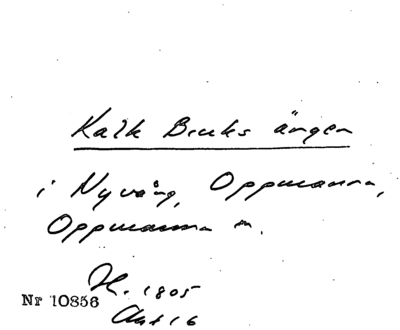 Kalk Bruks ängen
i Nyvång, Oppmanna,
Oppmanna sn.
H. 1805
Nr 10856
Akt 16